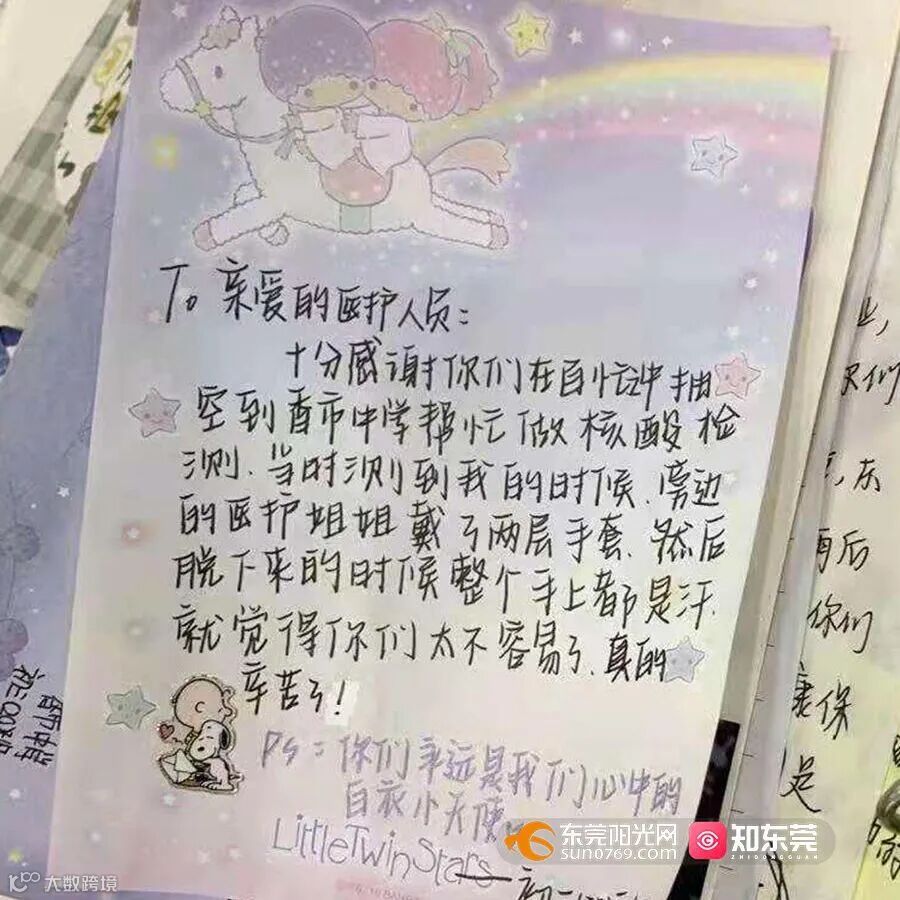 To 亲爱的医护人员:
十分感谢你们在百忙中抽
空到香市中学帮忙做核酸检
测、当时测到我的时候、旁边
的医护姐姐戴了两层手套、然后
脱下来的时候整个手上都是汗.
就觉得你们太不容易了、真的
辛苦了!
Ps:你们永远是我们心中的
白衣小天使
LittleTwinStars
业,
你们
再后
你们
康保
是
东莞阳光网
sun0769.com
知东莞
ZHIDONGGUAN
大数跨境